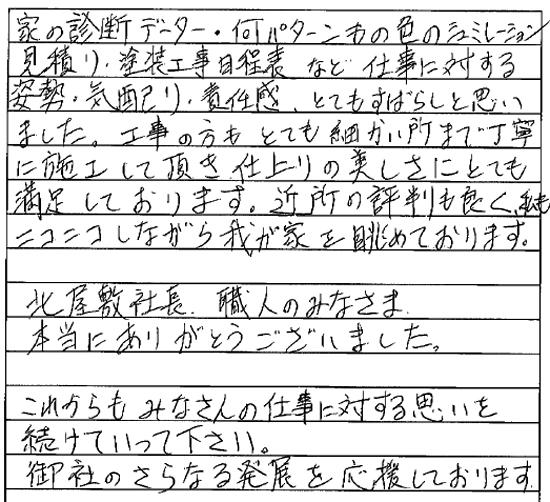 家の診断データー・何パターンもの色のシュミレーション
見積り・塗装工事日程表 など 仕事に対する
姿勢・気配り・責任感、とてもすばらしと思い
ました。工事の方も とても細かい所まで丁寧
に施工して頂き仕上りの美しさにとても
満足しております。近所の評判も良く、私も
ニコニコしながら我が家を眺めております。
北屋敷社長、職人のみなさま、
本当にありがとうございました。
これからも みなさんの仕事に対する思いを
続けていって下さい。
御社のさらなる発展を応援しております